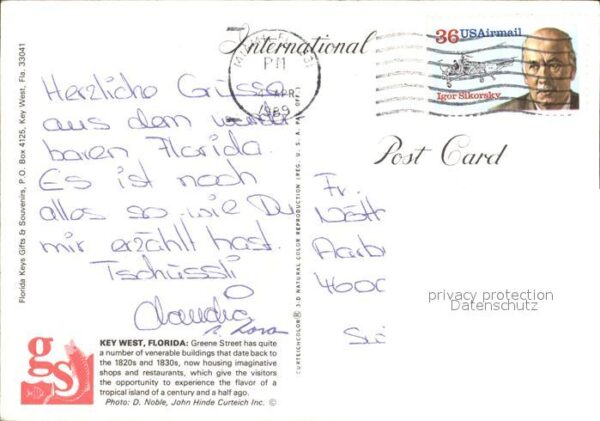 International
Post Card
36 USAirmail
Igor Sikorsky
MIAMI, FL
PM
APR
1989
Herzliche Grüsse
aus dem wunder-
baren Florida.
Es ist noch
alles so wie Du
mir erzählt hast.
Tschüssli
Claudia
Fr.
Aarb
4600
privacy protection
Datenschutz
Florida Keys Gifts & Souvenirs, P.O. Box 4125, Key West, Fla. 33041
CURTEICHCOLOR® 3-D NATURAL COLOR REPRODUCTION (REG. U.S.A. PAT. OFF.)
gs
KEY WEST, FLORIDA: Greene Street has quite
a number of venerable buildings that date back to
the 1820s and 1830s, now housing imaginative
shops and restaurants, which give the visitors
the opportunity to experience the flavor of a
tropical island of a century and a half ago.
Photo: D. Noble, John Hinde Curteich Inc. ©